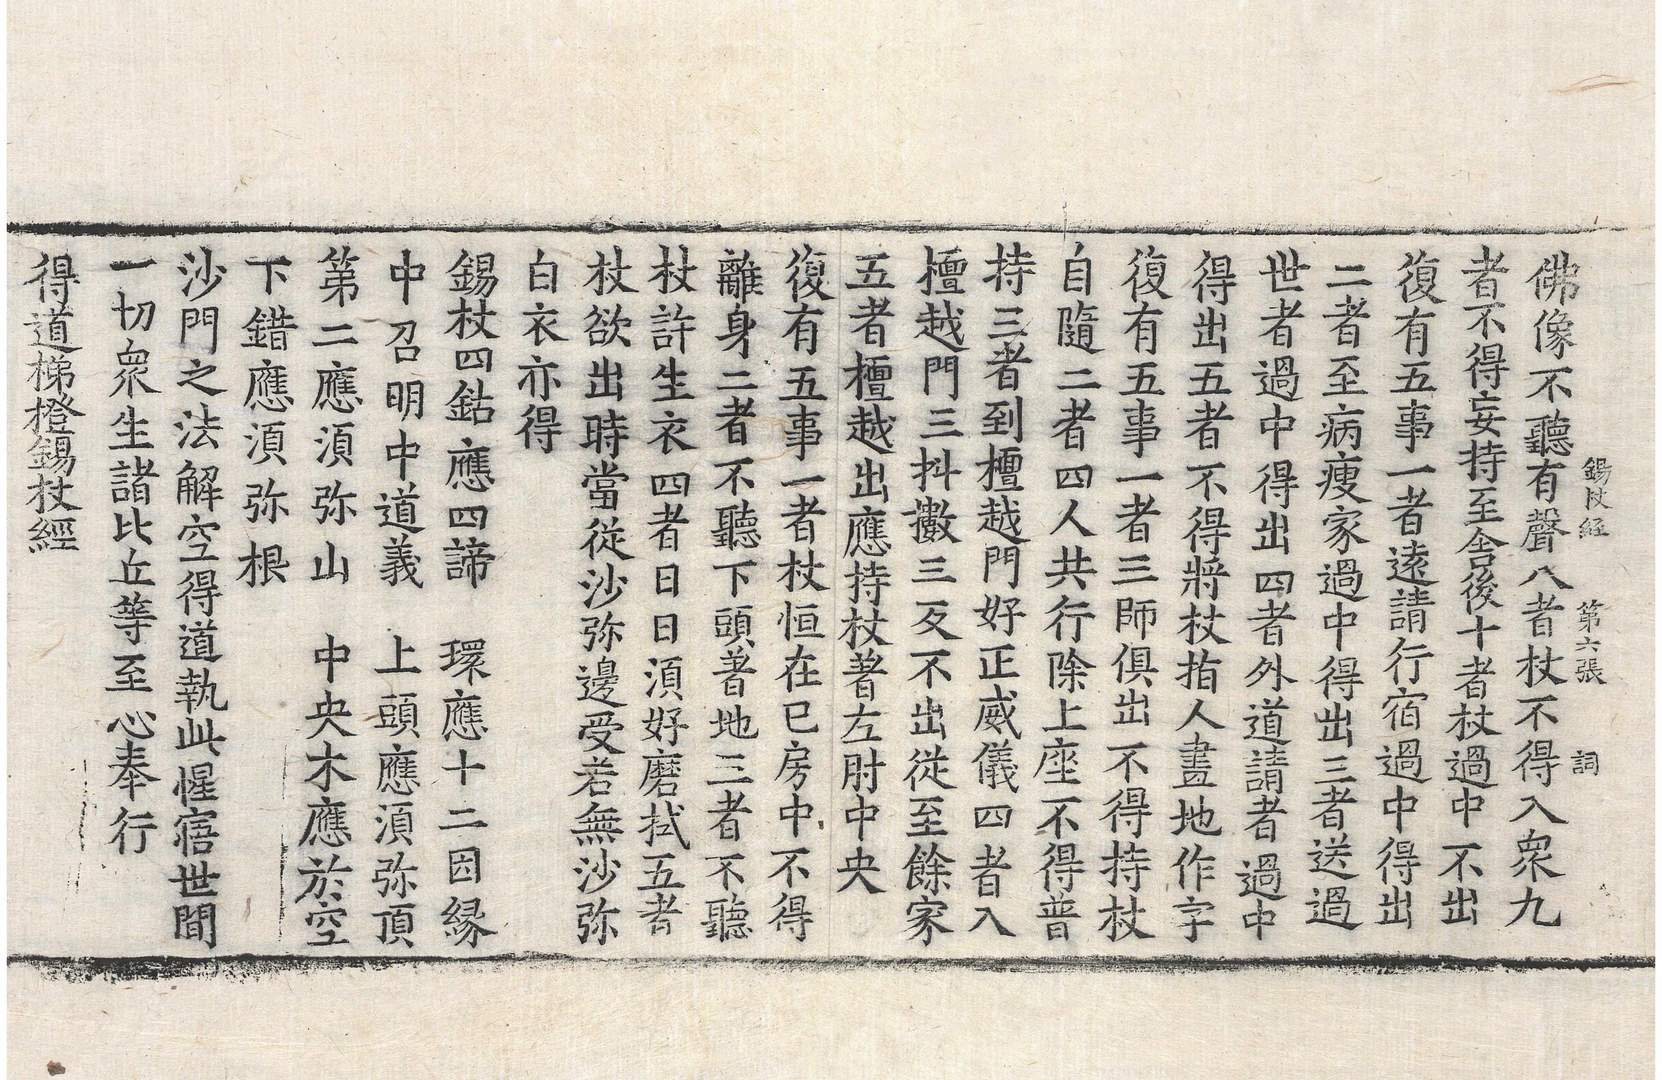 錫杖経 第六張 詞
佛像不聽有聲八者杖不得入衆九
者不得妄持至舎後十者杖過中不出
復有五事一者遠請行宿過中得出
二者至病瘦家過中得出三者送過
世者過中得出四者外道請者過中
得出五者不得將杖指人畫地作字
復有五事一者三師俱出不得持杖
自隨二者四人共行除上座不得普
持三者到檀越門好正威儀四者入
檀越門三抖擻三反不出從至餘家
五者檀越出應持杖著左肘中央
復有五事一者杖恒在已房中不得
離身二者不聽下頭著地三者不聽
杖許生衣四者日日湏好磨拭五者
杖欲出時當從沙弥邊受若無沙弥
白衣亦得
錫杖四鈷應四諦 環應十二因縁
中召明中道義 上頭應湏弥頂
第二應湏弥山 中央木應於空
下錯應湏弥根
沙門之法解空得道執此惺寤世間
一切衆生諸比丘等至心奉行
得道梯橙錫杖經